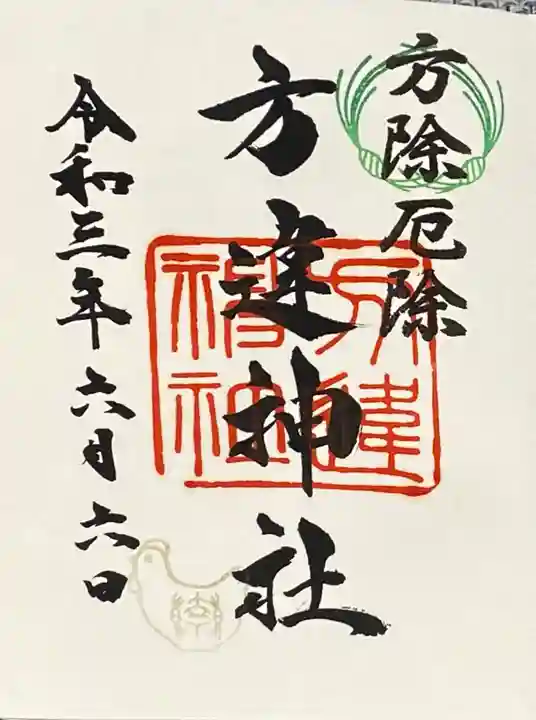 方除厄除
方違神社
方違神社
令和三年六月六日